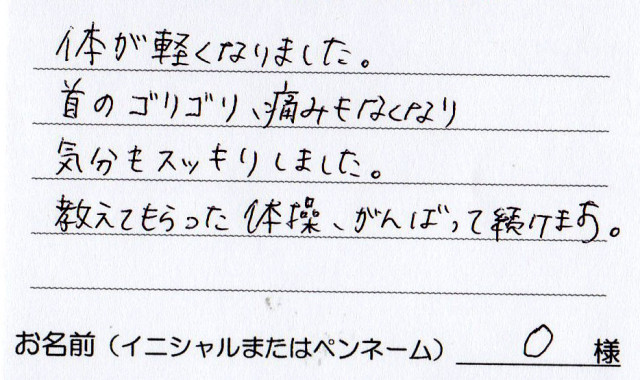 体が軽くなりました。
首のゴリゴリ、痛みもなくなり
気分もスッキリしました。
教えてもらった体操、がんばって続けます。
お名前（イニシャルまたはペンネーム） O 様